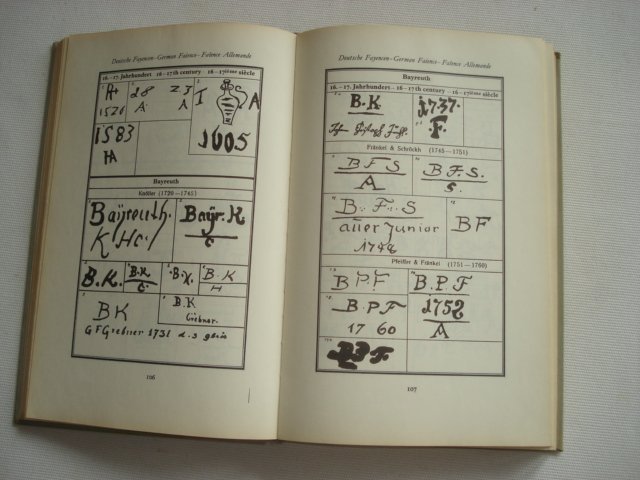 Deutsche Fayencen - German Faience - Faïence Allemande
16.-17. Jahrhundert 16-17th century 16-17ième siècle
1526
28
A
23
A
I A
1605
1583
HA
Bayreuth
Knöller (1720—1745)
Baÿreuth.
K. Hc.
Baÿr. K
C
B.K.
B.K
C.
B.K.
B.K
H
BK
B.K
Grebner.
GFGrebner 1731
106
Deutsche Fayencen - German Faience - Faïence Allemande
Bayreuth
16.-17. Jahrhundert - 16-17th century - 16-17ième siècle
B.K
1737.
F.
Fränkel & Schröckh (1745—1751)
B F S
A
B.F.S.
S.
B.F.S
auer Junior
1748
BF
Pfeiffer & Fränkel (1751—1760)
B P.F
B.P.F
B.P.F
17 60
1752
A
B P F
107